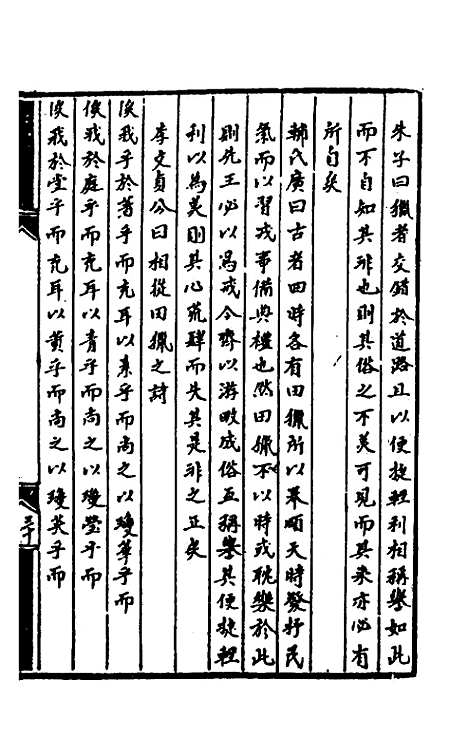 朱子曰獵者交錯於道路且以便捷輕利相稱譽如此
而不自知其非也則其俗之不美可見而其來亦必有
所自矣
輔氏廣曰古者四時各有田獵所以奉順天時發抒民
氣而以習戎事備典禮也然田獵不以時或耽樂於此
則先王必以為戒今齊以游畋成俗互稱譽其便旋輕
利以為美則其心荒肆而失其是非之正矣
李文貞公曰相從田獵之詩
俟我乎於著乎而充耳以素乎而尚之以瓊華乎而
俟我於庭乎而充耳以青乎而尚之以瓊瑩乎而
俟我於堂乎而充耳以黃乎而尚之以瓊英乎而